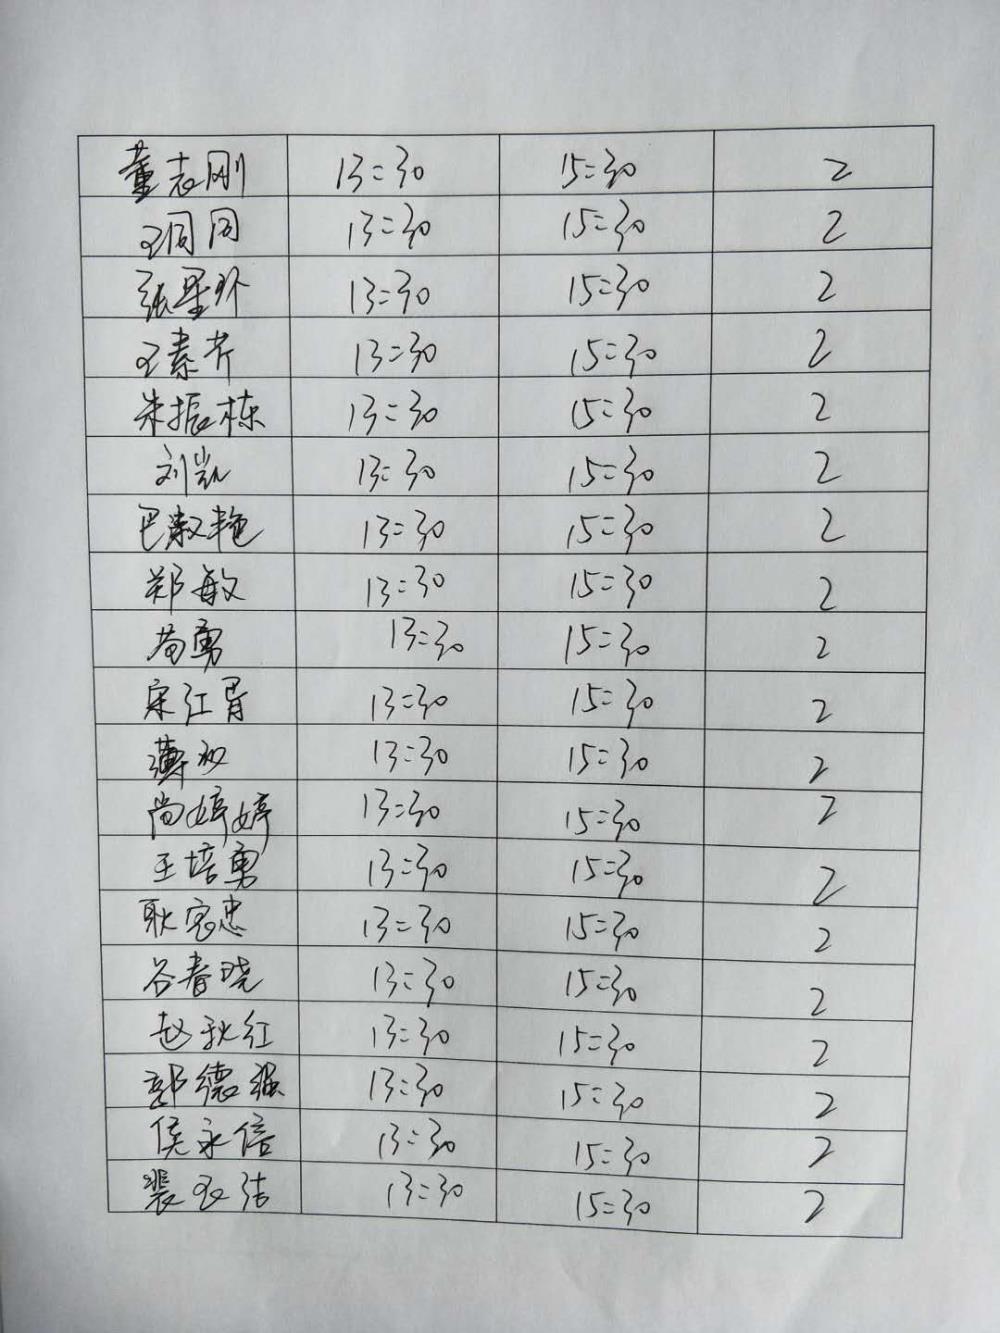 董志刚 13:30 15:30 2
王同同 13:30 15:30 2
张星环 13:30 15:30 2
王素芹 13:30 15:30 2
朱振栋 13:30 15:30 2
刘凯 13:30 15:30 2
巴淑艳 13:30 15:30 2
郑敏 13:30 15:30 2
苟勇 13:30 15:30 2
宋江胥 13:30 15:30 2
薄 13:30 15:30 2
尚婷婷 13:30 15:30 2
王培勇 13:30 15:30 2
耿宪忠 13:30 15:30 2
谷春晓 13:30 15:30 2
赵秋红 13:30 15:30 2
郭德强 13:30 15:30 2
侯永倍 13:30 15:30 2
裴玉洁 13:30 15:30 2